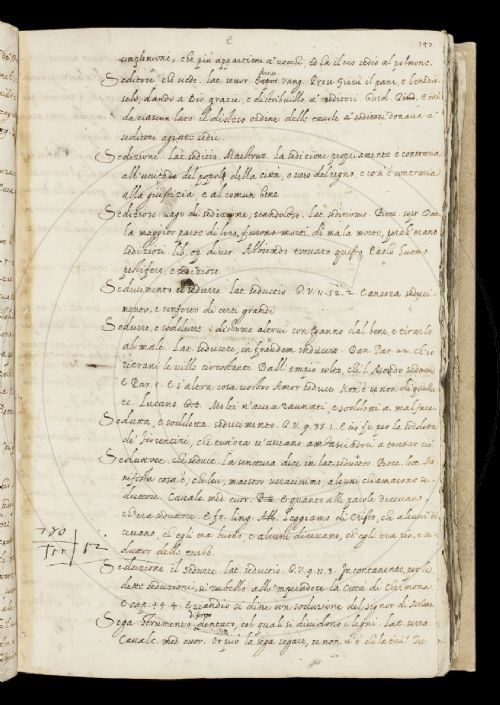 che più apparione a' vecchi, ed ha il suo sedio al polmone.
Seditore che siede. lat. Vang. Prese Giesù il pane, e benedis-
selo, dando a Dio grazie, e distribuillo a' seditori Guid. E così
da ciascun lato il disteso ordine delle tavole a' seditori donava a-
seditori agiate sedie
Sedizione Lat. seditio. Maestruz. la sedizione propriamente è contraria
all'unitade del popolo della città, o vero del regno, e così è contraria
alla giustizia, e al comun bene
Sedizioso vago di sedizione, scandoloso. Lat. seditiosus. Bocc.
la maggior parte di loro, furono morti di mala morte, perch'erano
sediziosi lib. Abbiendo trovato questo Paolo huomo
pestifero, e sedizioso
Seducimento il sedurre. lat. seductio. G.V. 11. 52. 2 E ancora seduci-
mento, e conforto di certi grandi
Sedurre, e sodducere: distorre altrui con inganno dal bene, e tirarlo
al male. Lat. seducere, in fraudem inducere. Dan. Par. 22. ch'io
ritrassi le ville circostanti Dall'empio colto, che 'l Mondo sedusse
E Par. 5. E s'altra cosa vostro Amor seduce Non è se non di quella
ec. Lucano. Molti n'avea raunati, e sodotti a mal fare
Seduta, e soddotta seducimento. G.V. 9. 33. 1. E ciò fu per la sodotta
de' fiorentini, che tuttora v'aveano ambasciadori a trattar ciò
Seduttore che seduce. La scrittura dice in lat. seductor Bocc.
cosa è, che lui, maestro veracissimo, alcuni chiamarono se-
duttore. Cavalc. med. cuor. E quanto alle parole dicevano,
ch'era seduttore. E fr. ling. Leggiamo di Cristo, che alcuni di-
cevano, ch'egli era buono, e alcuni dicevano, ch'egli era reo, e se-
duttor delle turbe.
Seduzione il sedurre. Lat. seductio. G.V. 9. 11. 3 Incontanente, per le
dette seduzioni, si rubellò allo 'mperadore la Città di Chermona
E cap. 44. 4. Eziandio si disse con seduzione del signor di
Sega Strumento dentato, col qual si dividono i legni. Lat. serra
Cavalc. med. cuor. Or può la sega segare, se non v'è chi la tiri?